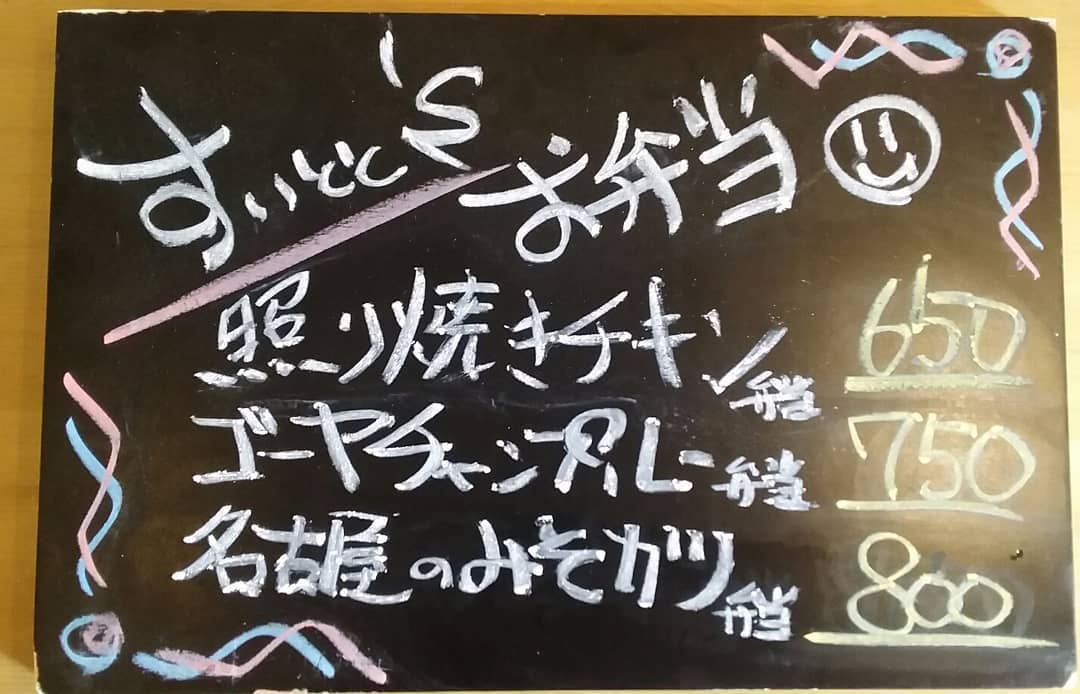 すぃとと's お弁当
照り焼きチキン弁当 650
ゴーヤチャンプルー弁当 750
名古屋のみそカツ弁当 800